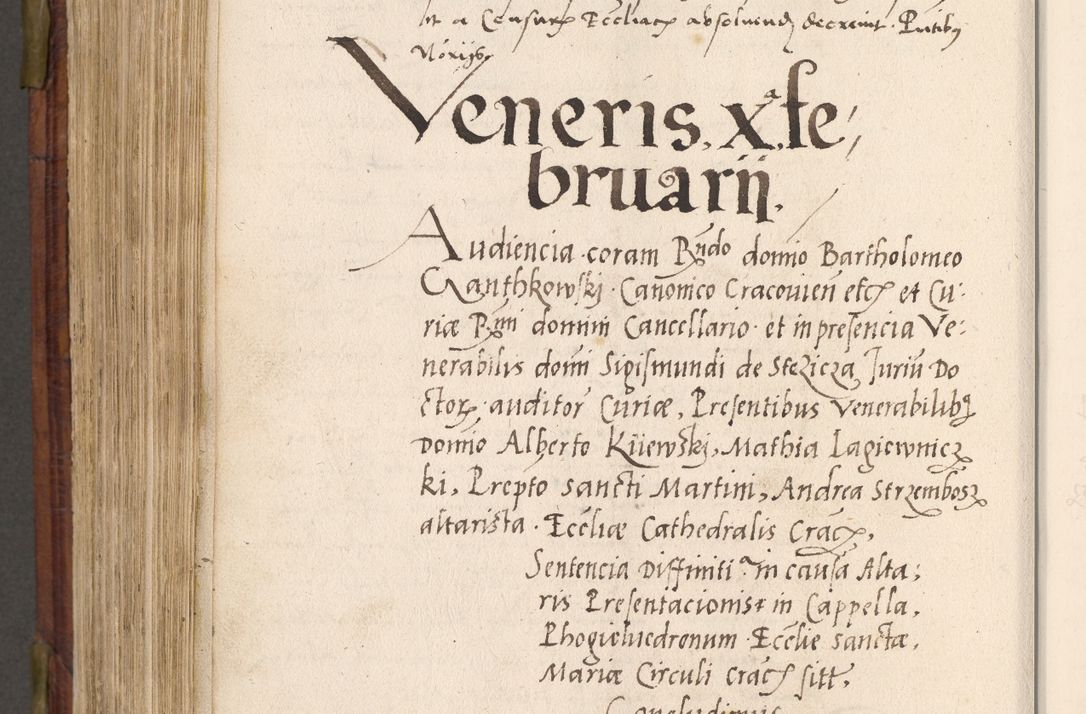 lit a Censurꝭ Eccliacꝭ absoluendꝭ decreuit. Pntibꝯ
Veneris. xª. fe,
bruarij.
Audiencia coram Rndo domio Bartholomeo
Ganthkowskj. Canonico Cracouien etcꝭ et Cu:
riæ Rmi domini Cancellario. et in presencia Ve:
nerabilis domi Sigismundi de Stezicza Juriū Do
ctorꝭ. auditor Curiæ, Presentibus Venerabilibꝯ
Domio Alberto Kiiewskj, Mathia Lagiewnicz
ki, Prepto sancti Martini, Andrea Strzembosz
altarista. Eccliæ Cathedralis Cracꝭ,
Sentencia Diffinitiª in causa Alta:
ris Presentacionis in Cappella,
Ecclie sanctæ,
Mariæ Circuli Cracꝭ sitt,